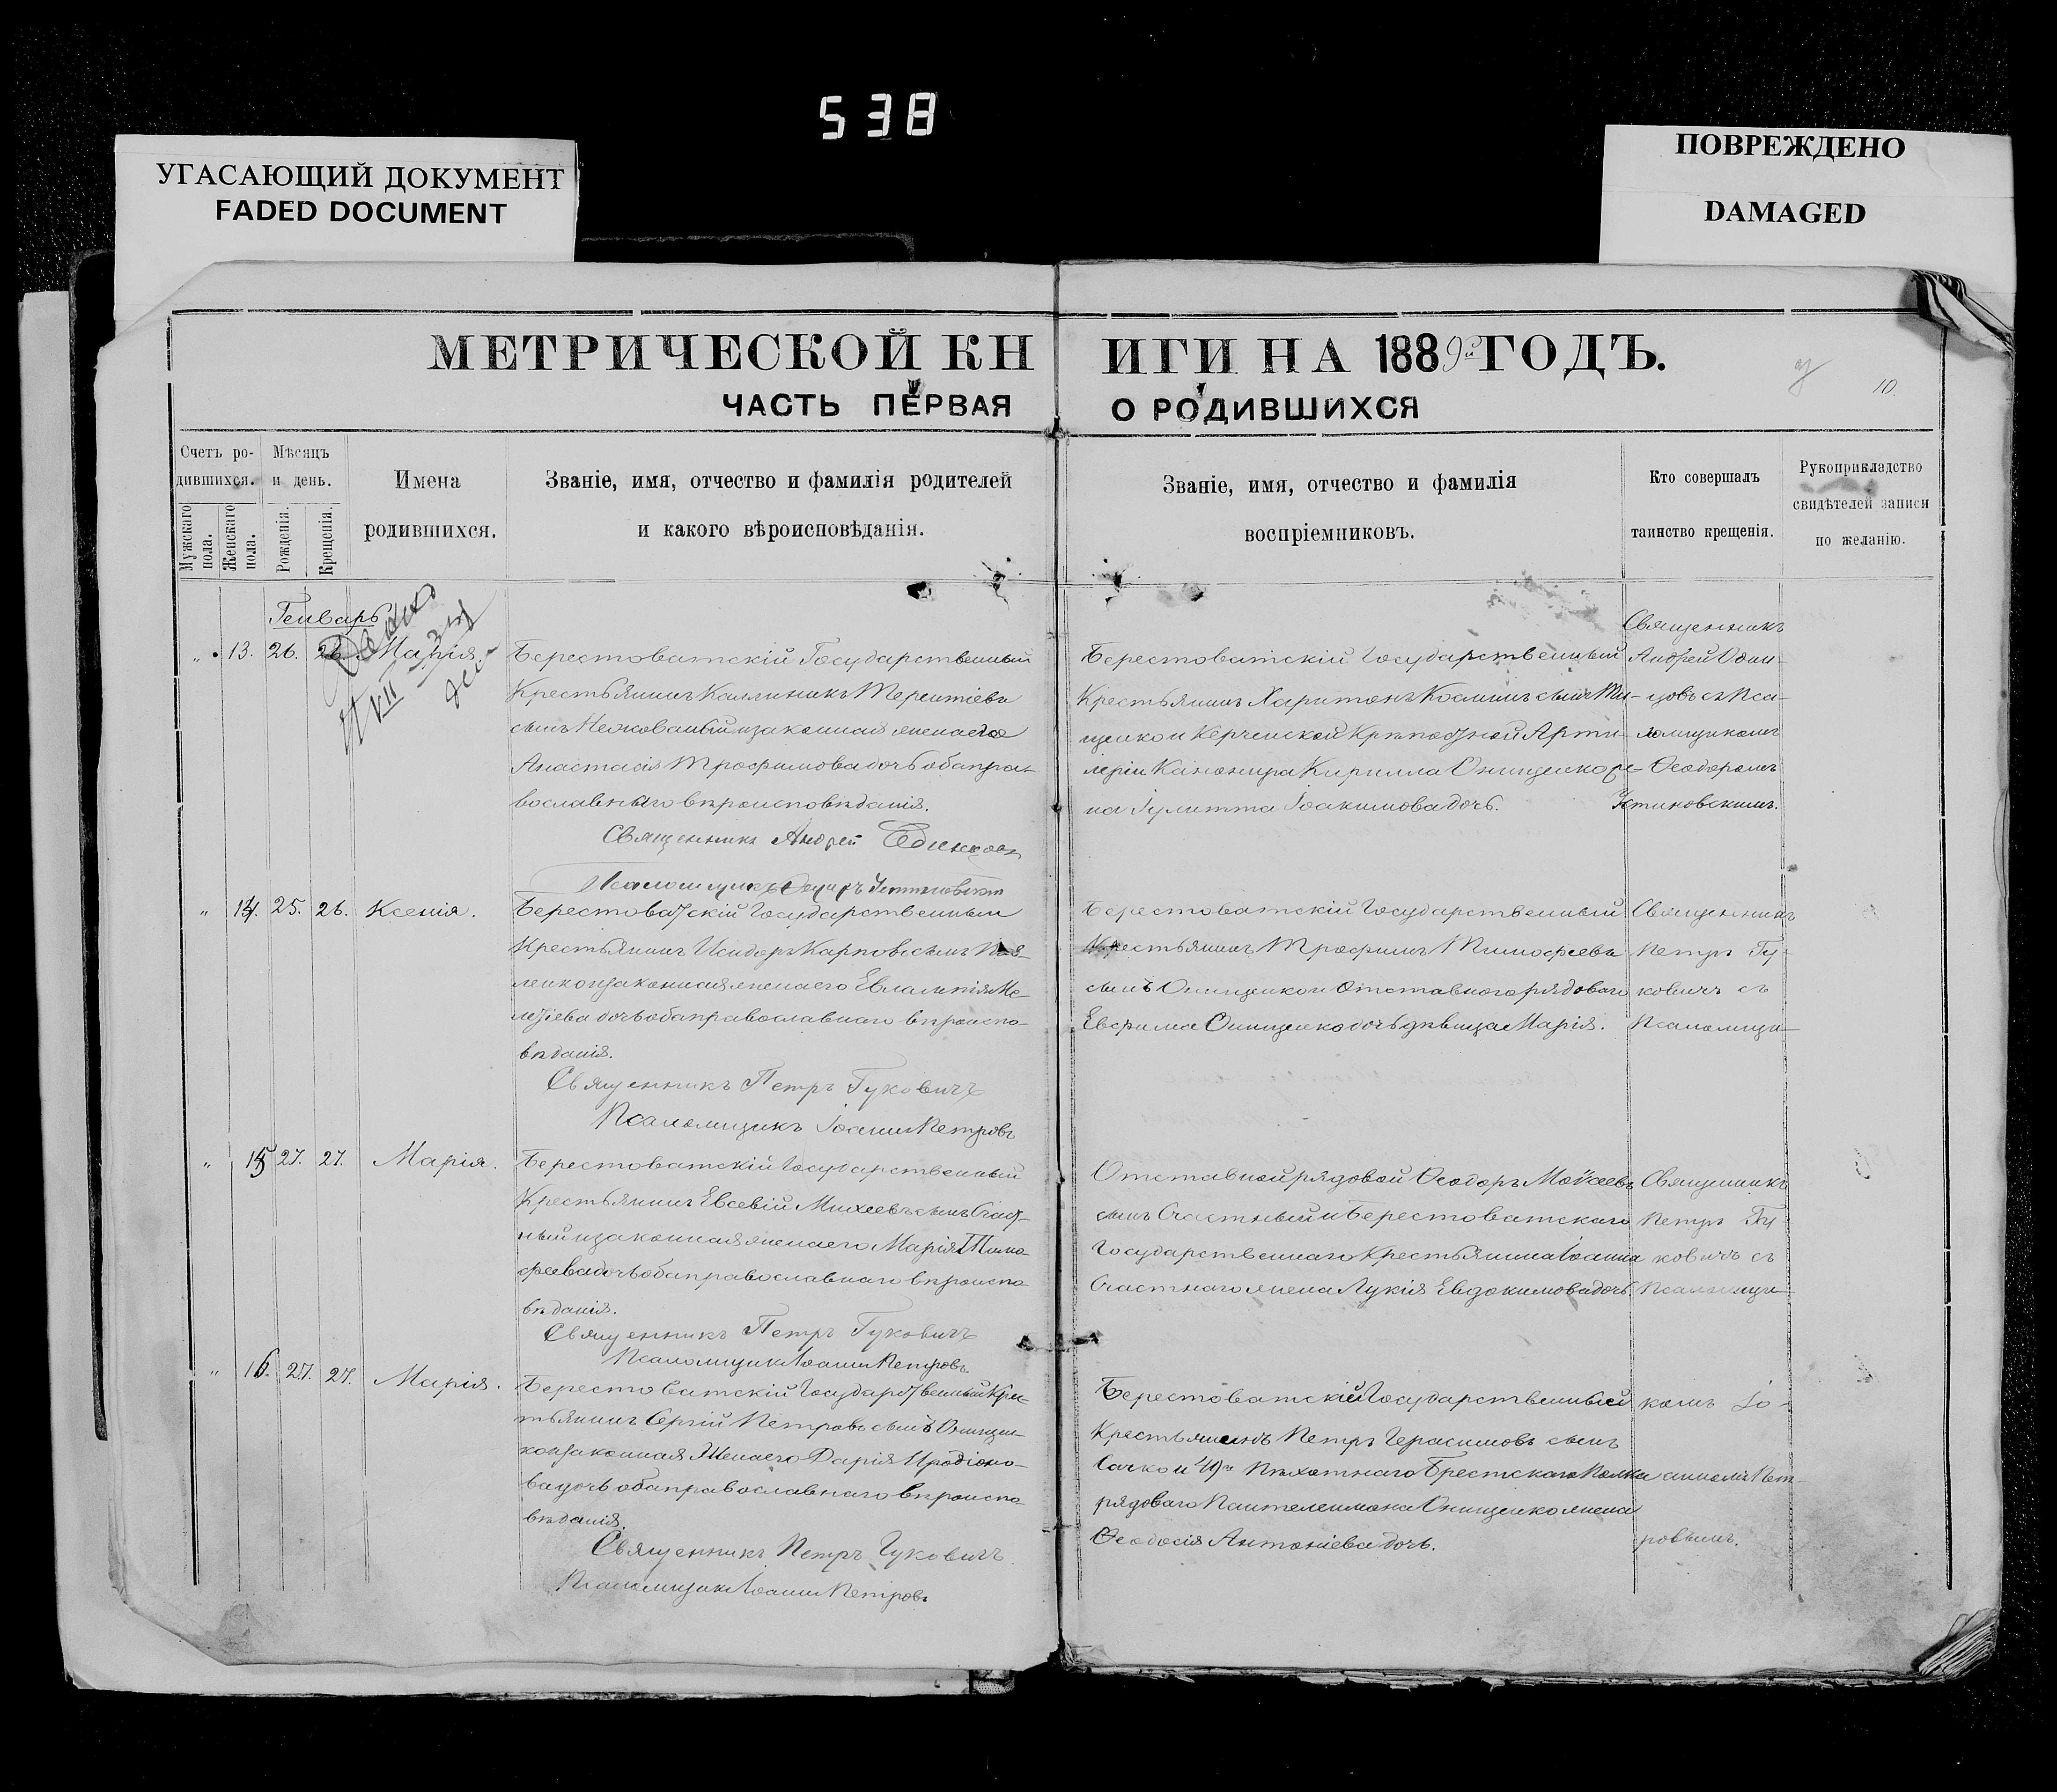 538
УГАСАЮЩИЙ ДОКУМЕНТ
FADED DOCUMENT
ПОВРЕЖДЕНО
DAMAGED
МЕТРИЧЕСКОЙ КНИГИ НА 1889й ГОДЪ.
ЧАСТЬ ПЕРВАЯ О РОДИВШИХСЯ
10.
Счетъ родившихся.
Мужскаго пола.
Женскаго пола.
Мѣсяцъ и день.
Рожденія.
Крещенія.
Имена
родившихся.
Званіе, имя, отчество и фамилія родителей
и какого вѣроисповѣданія.
Званіе, имя, отчество и фамилія
воспріемниковъ.
Кто совершалъ
таинство крещенія.
Рукоприкладство
свидѣтелей записи
по желанію.
Генварь
„ 13. 26. 26. Марія
Берестоватскій Государственный
Крестьянинъ Каллиникъ Терентіевъ
сынъ и законная жена его
Анастасія Трофимова дочь оба пра-
вославнаго вѣроисповѣданія.
Священникъ Андрей Одинцовъ
Псаломщикъ Ѳеодоръ Устиновскій
Берестоватскій Государственный
Крестьянинъ Харитонъ Косминъ сынъ Ти-
щенко и Керченской Крѣпостной Арти-
леріи Канонира Кирилла Онищенко же-
на Іулитта Іоакимова дочь.
Священникъ
Андрей Один-
цовъ съ Пса-
ломщикомъ
Ѳеодоромъ
Устиновскимъ.
„ 14. 25. 26. Ксенія.
Берестоватскій Государственный
Крестьянинъ Исидоръ Карповъ сынъ Пав-
ленко и законная жена его Евлампія Ме-
летіева дочь оба православнаго вѣроиспо-
вѣданія.
Священникъ Петръ Гуковичъ
Псаломщикъ Іоаннъ Петровъ
Берестоватскій Государственный
Крестьянинъ Трофимъ Тимофеевъ
сынъ Онищенко и Отставного рядового
Евфима Онищенко дочь дѣвица Марія.
Священникъ
Петръ Гу-
ковичъ съ
Псаломщи-
„ 15 27. 27. Марія.
Берестоватскій Государственный
Крестьянинъ Евсевій Михеевъ сынъ Счаст-
ный и законная жена его Марія Тимо-
феева дочь оба православнаго вѣроиспо-
вѣданія.
Священникъ Петръ Гуковичъ
Псаломщикъ Іоаннъ Петровъ
Отставной рядовой Ѳеодоръ Моѵсеевъ
сынъ Счастный и Берестоватскаго
Государственнаго Крестьянина Іоанна
Счастнаго жена Лукія Евдокимова дочь
Священникъ
Петръ Гу-
ковичъ съ
Псаломщи-
„ 16. 27. 27. Марія.
Берестоватскій Государственный Крес-
тьянинъ Сергій Петровъ сынъ Онищен-
ко и законная Жена его Дарія Иродіоно-
ва дочь оба православнаго вѣроиспо-
вѣданія.
Священникъ Петръ Гуковичъ.
Псаломщикъ Іоаннъ Петровъ.
Берестоватскій Государственный
Крестьянинъ Петръ Герасимовъ сынъ
Сачко и 49го Пѣхотнаго Брестскаго Полка
рядового Пантелеимона Онищенко жена
Ѳеодосія Антоніева дочь.
комъ Іо-
анномъ Пет-
ровымъ.